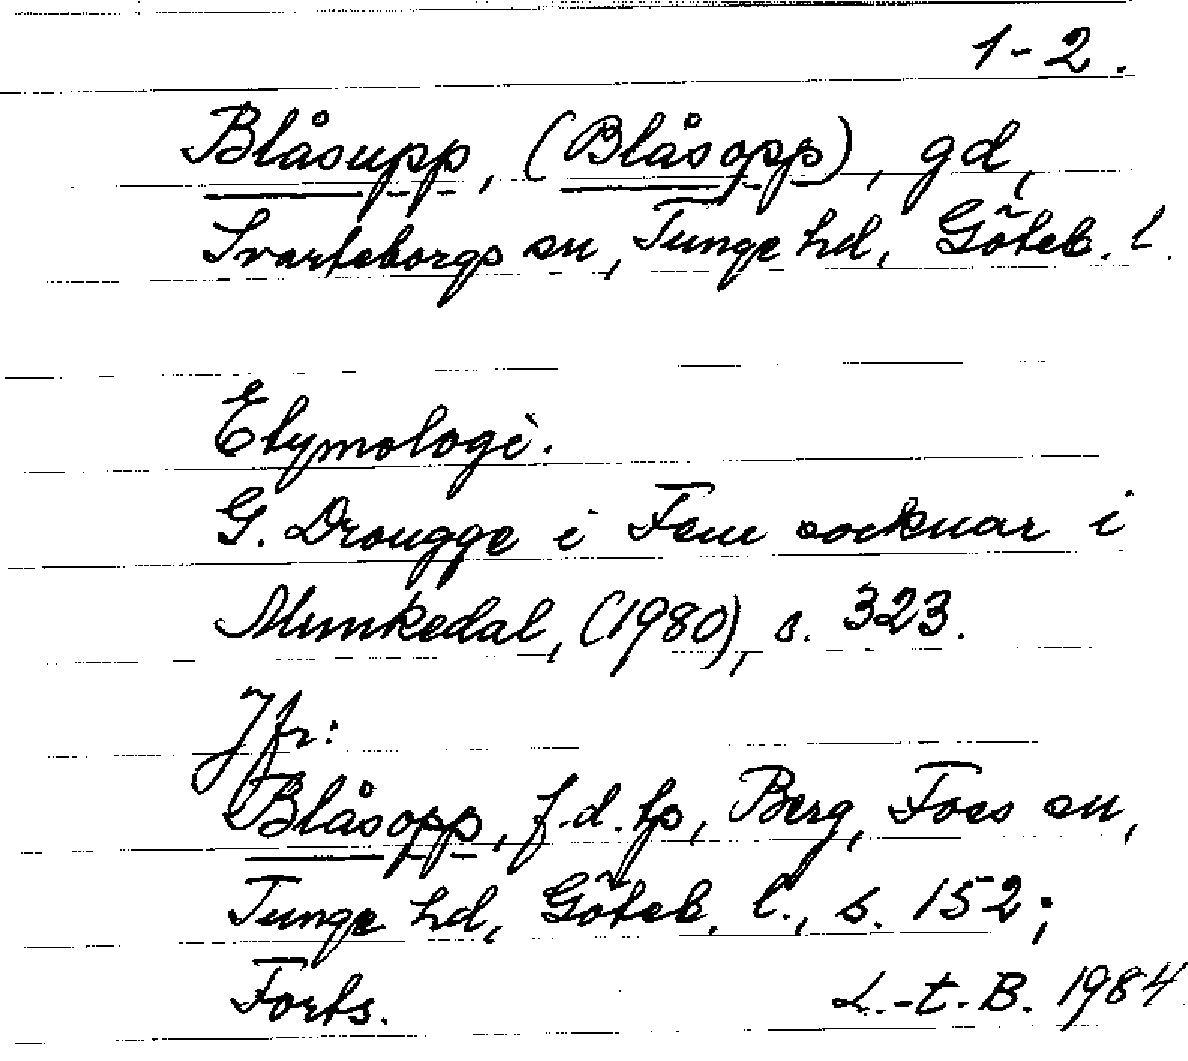 1-2.
Blåsupp, (Blåsopp), gd,
Svarteborgs sn, Tunge hd, Göteb. l.
Etymologi.
G. Drougge i Fem socknar i
Munkedal, (1980), s. 323.
Jfr:
Blåsopp, f.d. tp, Berg, Foss sn,
Tunge hd, Göteb. l., s. 152;
Forts. L.-t. B. 1984